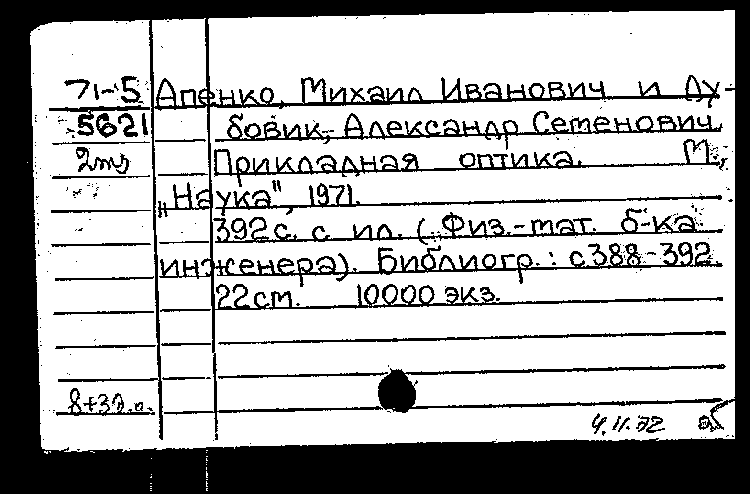 71-5 Апенко, Михаил Иванович и Ду-
5621 бовик, Александр Семенович.
2 тз Прикладная оптика. М.,
„Наука", 1971.
392 с. с ил. (Физ.-мат. б-ка
инженера). Библиогр.: с 388-392.
22 см. 10000 экз.
8+32.
4.11.72